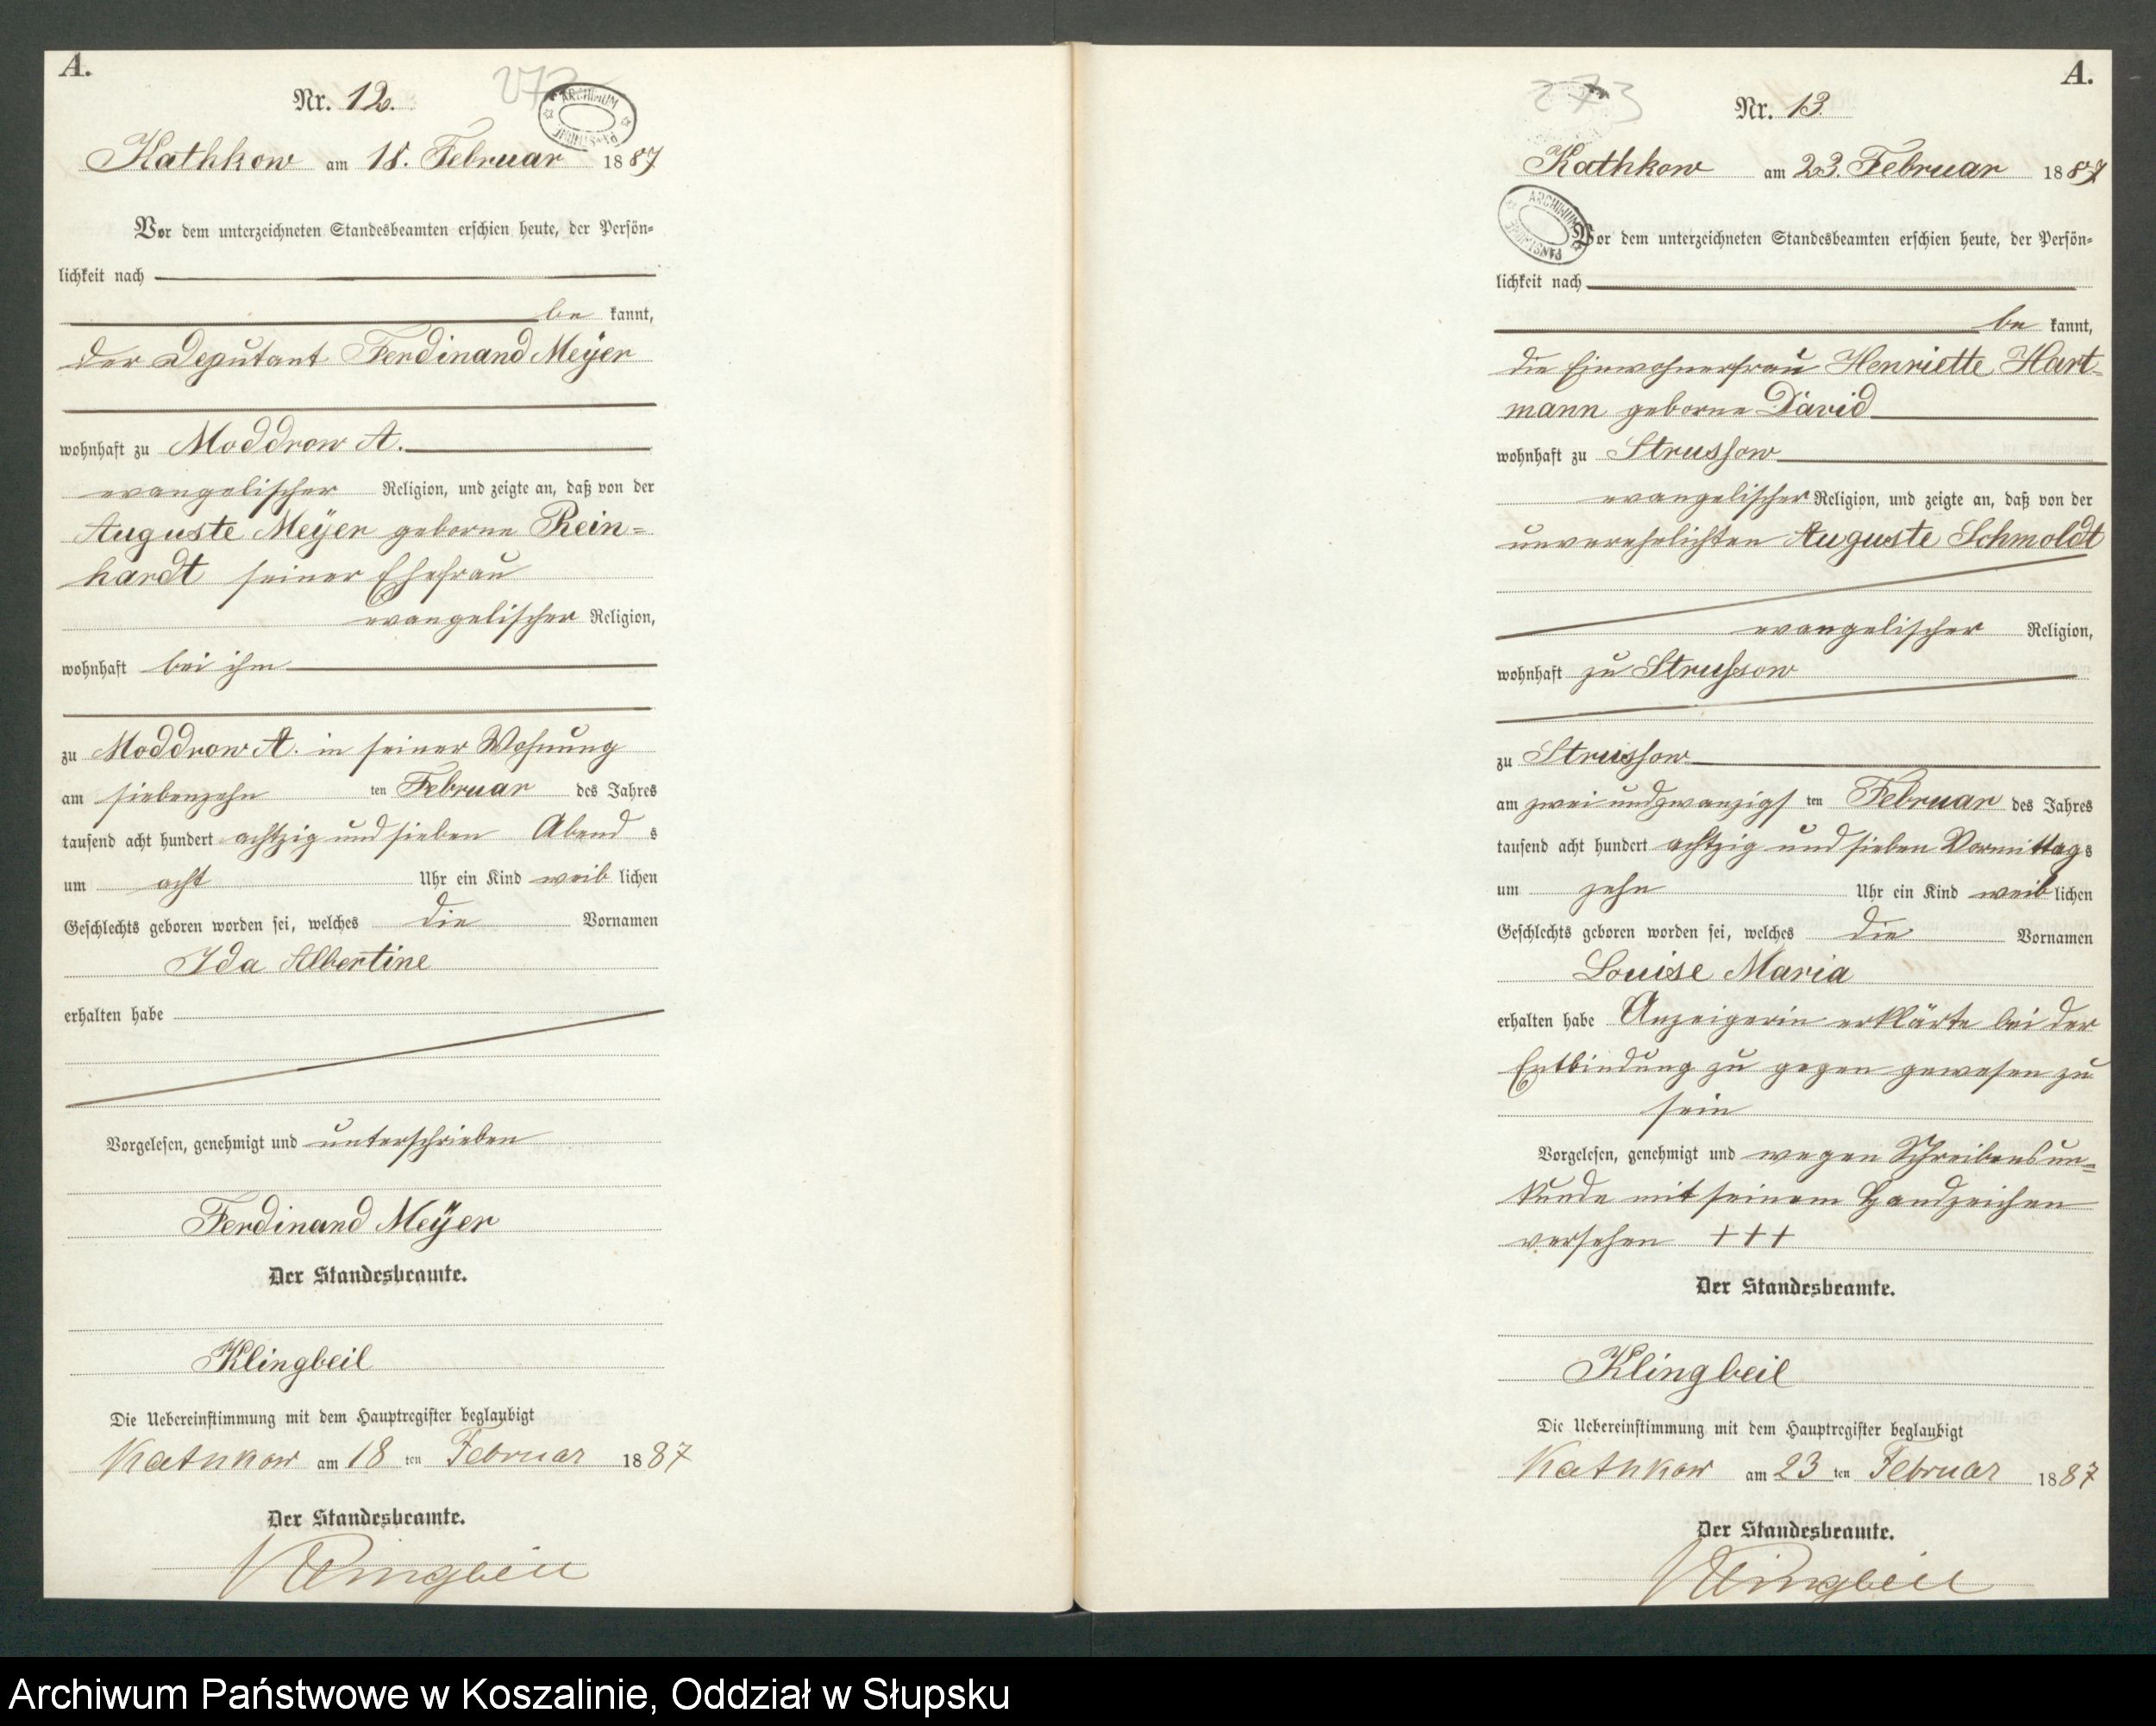 A.
Nr. 12.
Kathkow am 18. Februar 1887
Vor dem unterzeichneten Standesbeamten erschien heute, der Persön=
lichkeit nach
be kannt,
der Deputant Ferdinand Meÿer
wohnhaft zu Moddrow A.
evangelischer Religion, und zeigte an, daß von der
Auguste Meÿer geborne Rein=
hardt seiner Ehefrau
evangelischer Religion,
wohnhaft bei ihm
zu Moddrow A. in seiner Wohnung
am siebenzehn ten Februar des Jahres
tausend acht hundert achtzig und sieben Abend s
um acht Uhr ein Kind weib lichen
Geschlechts geboren worden sei, welches die Vornamen
Ida Albertine
erhalten habe
Vorgelesen, genehmigt und unterschrieben
Ferdinand Meÿer
Der Standesbeamte.
Klingbeil
Die Uebereinstimmung mit dem Hauptregister beglaubigt
Kathkow am 18 ten Februar 1887
Der Standesbeamte.
Klingbeil
A.
273
Nr. 13.
Kathkow am 23. Februar 1887
Vor dem unterzeichneten Standesbeamten erschien heute, der Persön=
lichkeit nach
be kannt,
die Einwohnerfrau Henriette Hart=
mann geborne David
wohnhaft zu Strussow
evangelischer Religion, und zeigte an, daß von der
unverehelichten Auguste Schmoldt
evangelischer Religion,
wohnhaft zu Strussow
zu Strussow
am zwei und zwanzigs ten Februar des Jahres
tausend acht hundert achtzig und sieben Vormittag s
um zehn Uhr ein Kind weib lichen
Geschlechts geboren worden sei, welches die Vornamen
Louise Maria
erhalten habe Anzeigerin erklärte bei der
Entbindung zu gegen gewesen zu
sein
Vorgelesen, genehmigt und wegen Schreibensun=
kunde mit seinem Handzeichen
versehen +++
Der Standesbeamte.
Klingbeil
Die Uebereinstimmung mit dem Hauptregister beglaubigt
Kathkow am 23 ten Februar 1887
Der Standesbeamte.
Klingbeil
Archiwum Państwowe w Koszalinie, Oddział w Słupsku